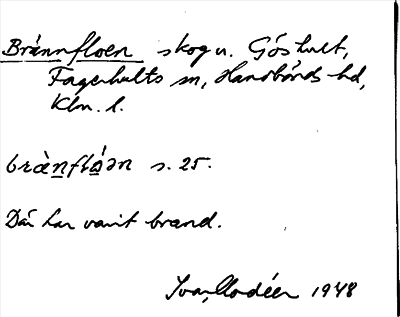 Brännfloen skog u. Göshult,
Fagerhults sn, Handbörds hd,
Klm. l.
brànflóən s. 25.
Där har varit brand.
Ivar Modéer 1948